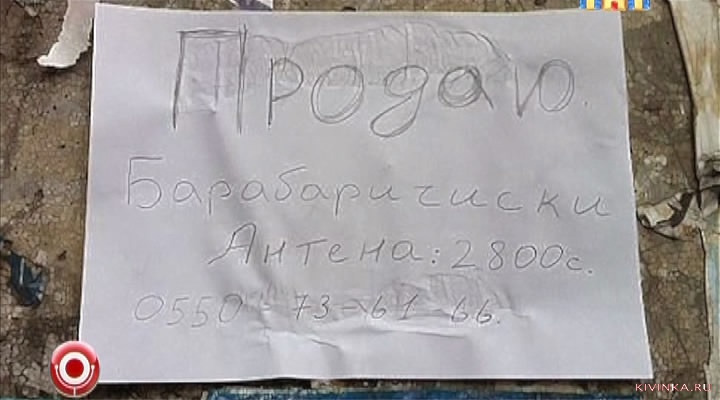 ТНТ
Продаю.
Барабаричиски
Антена: 2800с.
0550-73-61-66.
KIVINKA.RU